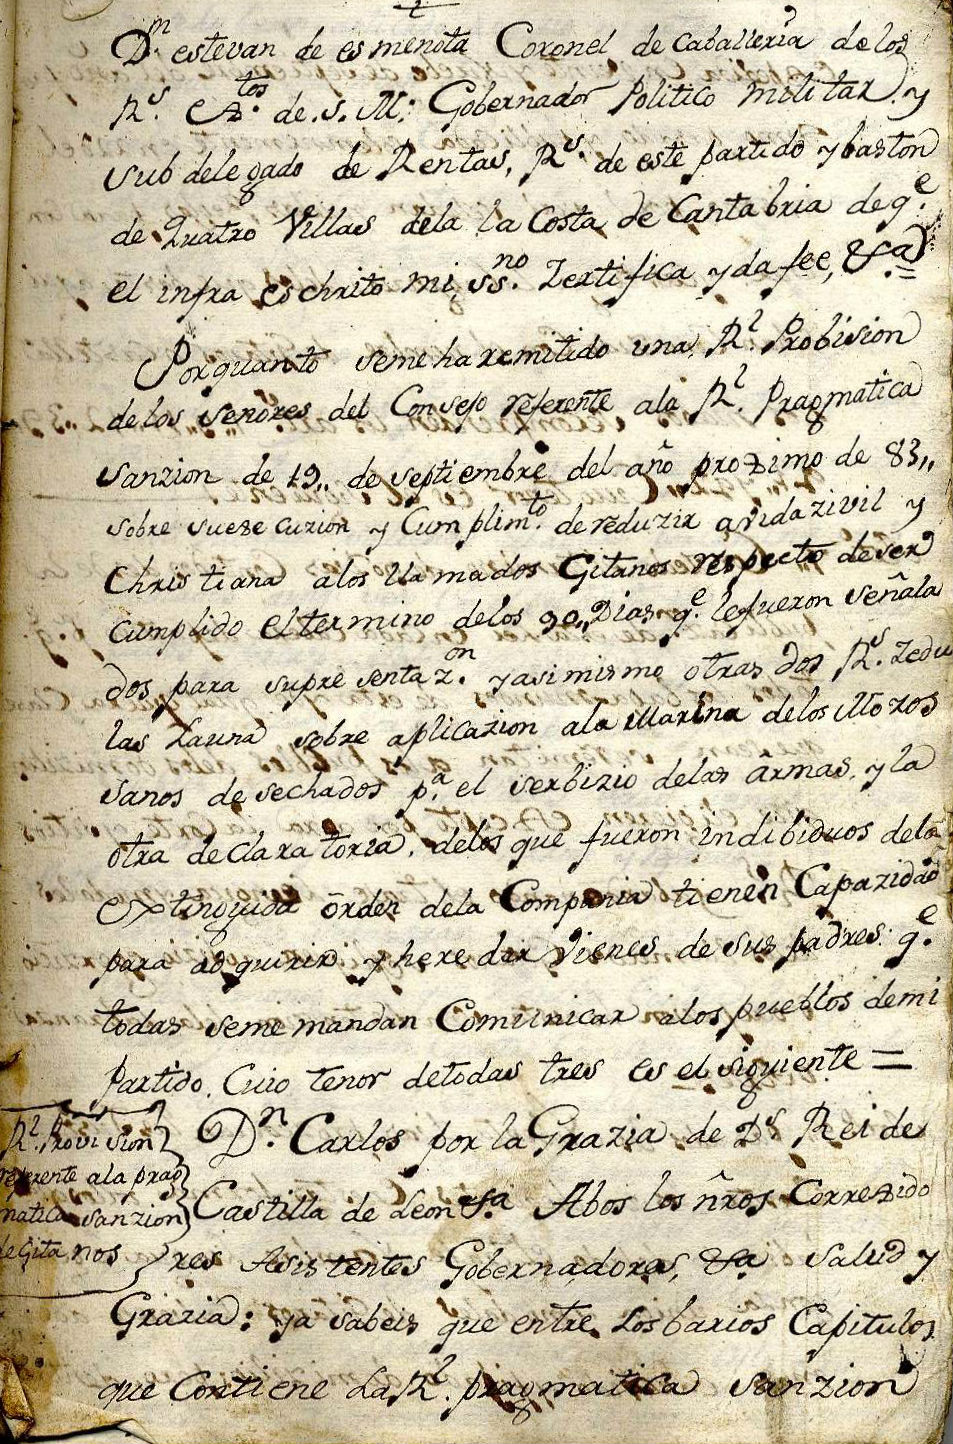 Dn. estevan de esmenota Coronel de caballeria de los
Rs. Extos. de. S. M. Gobernador Politico militar y
sub delegado de Rentas, Rs. de este partido y baston
de Quatro Villas dela la Costa de Cantabria de qe.
el infra eschrito mi, ssno. Zertifica y da fee, &a =
Por quanto seme ha remitido una, Rl. Probision
delos señores del Consejo referente ala Rl. Pragmatica
sanzion de 19,, de septiembre del año prozimo de 83,,
sobre suese cuzion y Cumplimto. de reduzir a vida zivil y
Christiana alos llamados Gitanos respecto de ser
cumplido el termino delos 90,, Dias qe. le fueron señala
dos para supre sentazon. y asimismo otras dos Rs. Zedu
las Launa sobre aplicazion ala Marina delos Mozos
sanos desechados pa. el serbizio delas armas, y la
otra declaratoria, delos que fueron indibiduos dela
extinguida orden dela Compania tienen Capazidad
para adquirir y heredar vienes de sus padres: qe.
todas seme mandan Comunicar alos pueblos demi
partido, Cuio tenor detodas tres es el siguiente =
Rl. Provision
referente ala prag
matica sanzion
de Gitanos
Dn. Carlos por la Grazia de Ds. Rei de
Castilla de Leon &a. Abos los ñros Correxido
res Asistentes Gobernadores, &a salud y
Grazia: ya sabeis que entre Los barios Capitulos
que Contiene La Rl. pragmatica sanzion